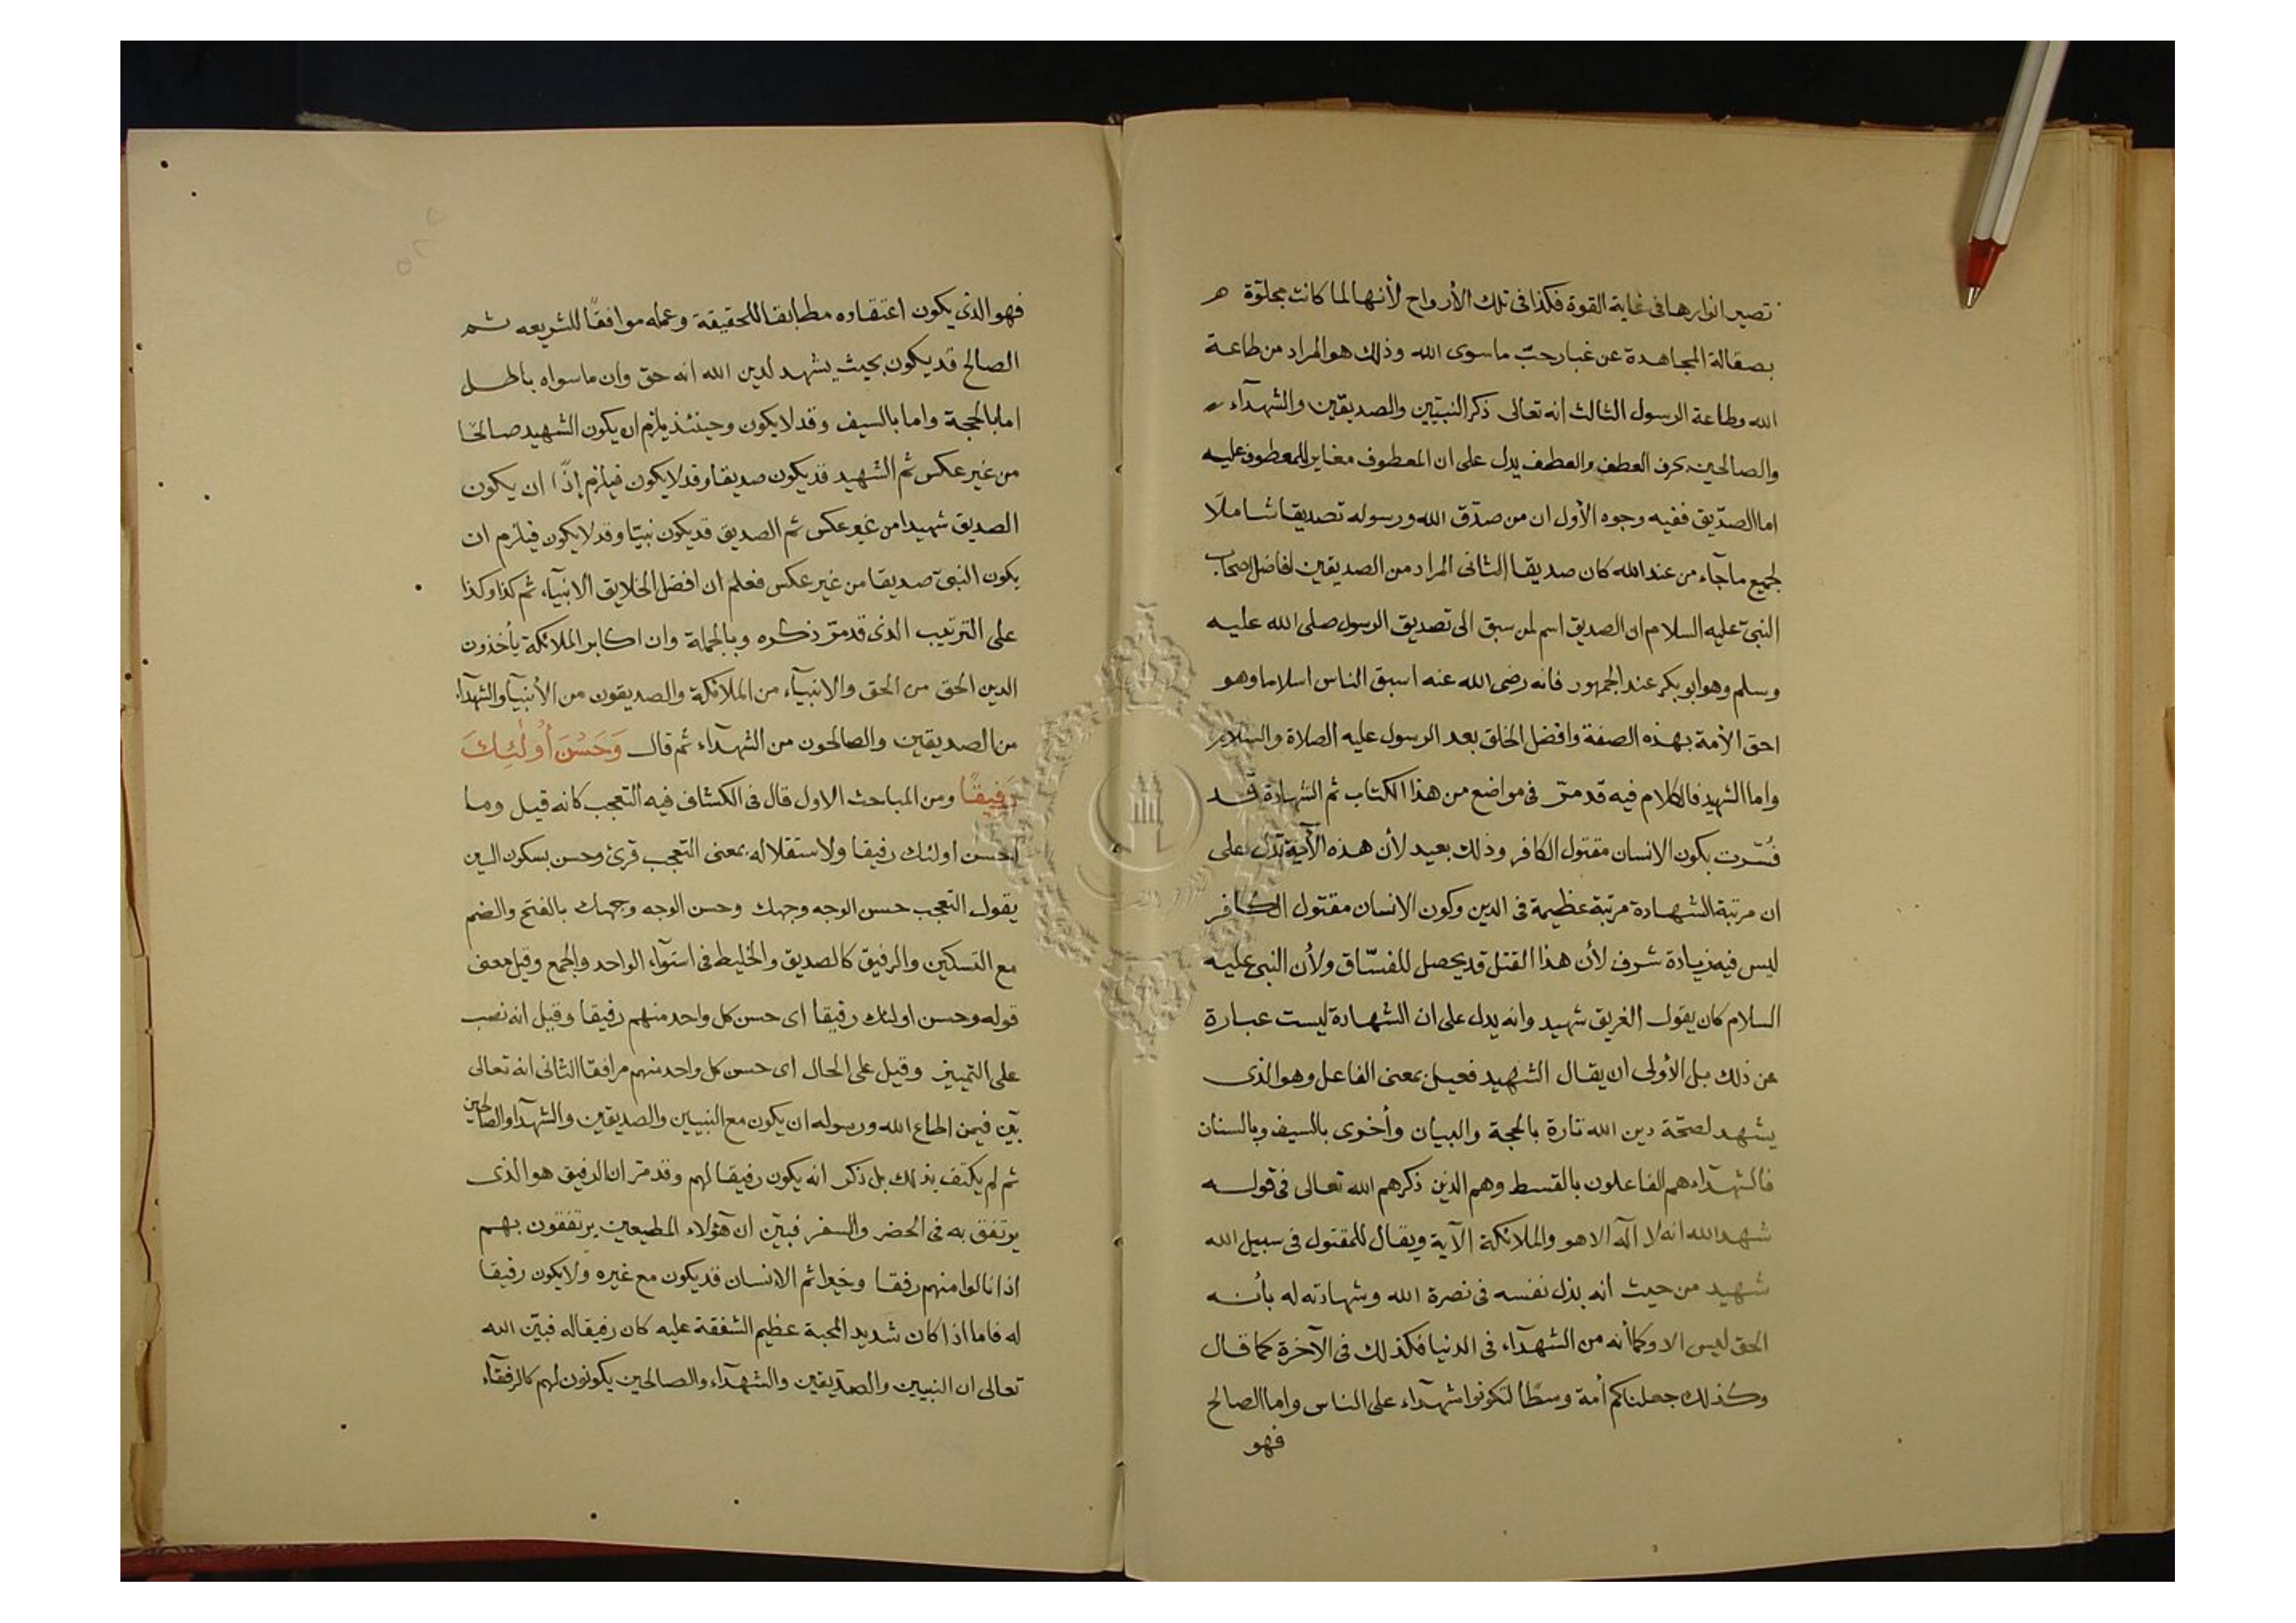 تصير انوارها فى غاية القوة فكذا فى تلك الأرواح لأنها لما كانت مجلوّة
بصقالة المجاهدة عن غبار حبّ ما سوى الله وذلك هو المراد من طاعة
الله وطاعة الرسول الثالث انه تعالى ذكر النبيّين والصديقين والشهدآء
والصالحين بحرف العطف والعطف يدل على ان المعطوف مغاير للمعطوف عليه
اما الصدّيق ففيه وجوه الأول ان من صدّق الله ورسوله تصديقا شاملاً
لجميع ما جآء من عند الله كان صديقا الثانى المراد من الصديقين افاضل اصحاب
النبىّ عليه السلام ان الصديق اسم لمن سبق الى تصديق الرسول صلى الله عليه
وسلم وهو ابو بكر عند الجمهور فانه رضى الله عنه اسبق الناس اسلاما وهو
احق الأمة بهذه الصفة وافضل الخلق بعد الرسول عليه الصلاة والسلام
واما الشهيد فالكلام فيه قد مرّ فى مواضع من هذا الكتاب ثم الشهادة قد
فُسّرت بكون الانسان مقتول الكافر وذلك بعيد لأن هذه الآية تدل على
ان مرتبة الشهادة مرتبة عظيمة فى الدين وكون الانسان مقتول الكافر
ليس فيه زيادة شرف لأن هذا القتل قد يحصل للفسّاق ولأن النبى عليه
السلام كان يقول الغريق شهيد وانه يدل على ان الشهادة ليست عبارة
عن ذلك بل الأولى ان يقال الشهيد فعيل بمعنى الفاعل وهو الذى
يشهد لصحّة دين الله تارة بالحجة والبيان وأخرى بالسيف وبالسنان
فالشهدآء هم الفاعلون بالقسط وهم الذين ذكرهم الله تعالى فى قوله
شهد الله انه لا آله الا هو والملائكة الآية ويقال للمقتول فى سبيل الله
شهيد من حيث انه بذل نفسه فى نصرة الله وشهادته له بأنه
الحق ليس الا وكما أنه من الشهدآء فى الدنيا فكذلك فى الآخرة كما قال
وكذلك جعلناكم أمة وسطًا لتكونوا شهدآء على الناس واما الصالح
فهو
فهو الذى يكون اعتقاده مطابقا للحقيقة وعمله موافقًا للشريعه ثم
الصالح قد يكون بحيث يشهد لدين الله انه حق وان ما سواه باطل
اما بالحجة واما بالسيف وقد لا يكون وحينئذ يلزم ان يكون الشهيد صالحًا
من غير عكس ثم الشهيد قد يكون صديقا وقد لا يكون فيلزم إذًا ان يكون
الصديق شهيدا من غير عكس ثم الصديق قد يكون نبيّا وقد لا يكون فيلزم ان
يكون النبىّ صديقا من غير عكس فعلم ان افضل الخلايق الانبيآء ثم كذا وكذا
على الترتيب الذى قد مرّ ذكره وبالجملة وان اكابر الملائكة يأخذون
الدين الحق من الحق والانبيآء من الملائكة والصديقون من الأنبيآ والشهدآء
من الصديقين والصالحون من الشهدآء ثم قال وَحَسُنَ أُولَٰئِكَ
رَفِيقًا ومن المباحث الاول قال فى الكشاف فيه التعجب كانه قيل وما
احسن اولئك رفيقا ولاستقلاله بمعنى التعجب قرئ وحسن بسكون السين
يقول التعجب حسن الوجه وجهك وحسن الوجه وجهك بالفتح والضم
مع التسكين والرفيق كالصديق والخليط فى استوآء الواحد والجمع وقيل معنى
قوله وحسن اولئك رفيقا اى حسن كل واحد منهم رفيقا وقيل انه نصب
على التمييز وقيل على الحال اى حسن كل واحد منهم مرافقا الثانى انه تعالى
بيّن فيمن اطاع الله ورسوله ان يكون مع النبيين والصديقين والشهدآ والصالحين
ثم لم يكتف بذلك بل ذكر انه يكون رفيقا لهم وقد مرّ ان الرفيق هو الذى
يرتفق به فى الحضر والسفر فبيّن ان هؤلاء المطيعين يرتفقون بهم
اذا نالوا منهم رفقا وخيرا ثم الانسان قد يكون مع غيره ولا يكون رفيقا
له فاما اذا كان شديد المحبة عظيم الشفقة عليه كان رفيقا له فبيّن الله
تعالى ان النبيين والصدّيقين والشهدآء والصالحين يكونون لهم كالرفقآء